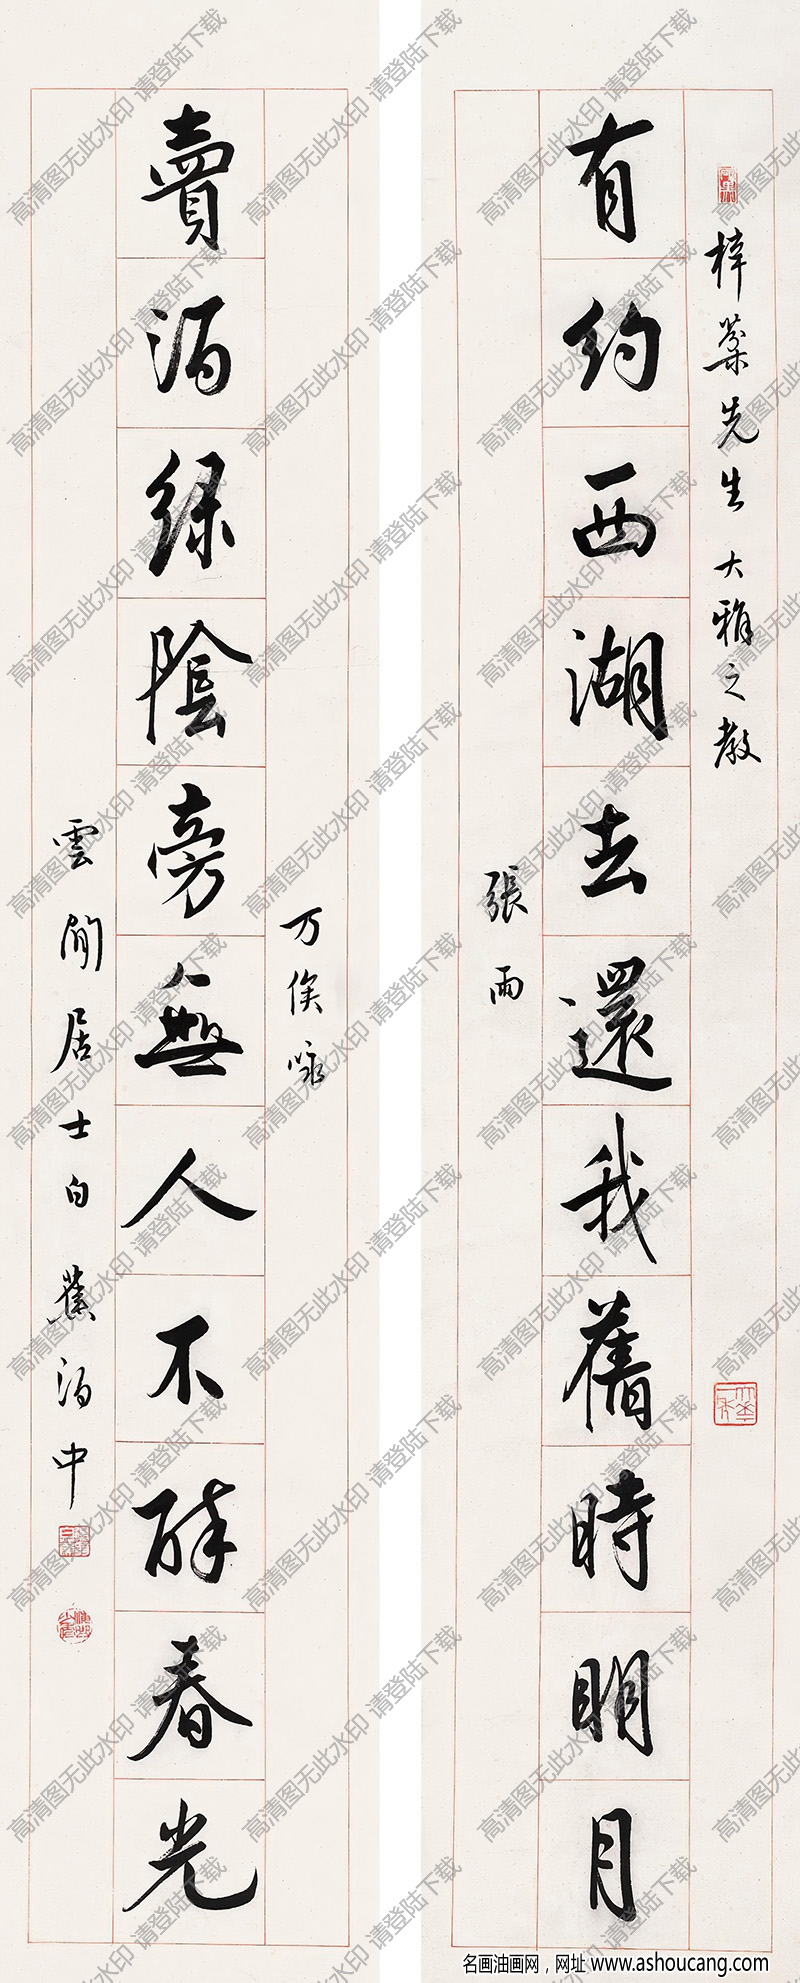 梓蔡先生大雅之教
有约西湖去還我舊時明月
張雨
万俟詠
賣酒绿陰旁無人不醉春光
雲間居士白蕉酒中
高清图无此水印 请登陆下载
名画油画网，网址 www.ashoucang.com